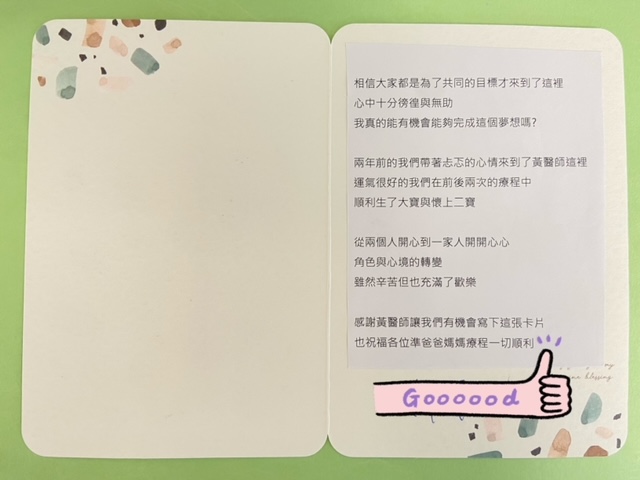 相信大家都是為了共同的目標才來到了這裡
心中十分徬徨與無助
我真的能有機會能夠完成這個夢想嗎?
兩年前的我們帶著忐忑的心情來到了黃醫師這裡
運氣很好的我們在前後兩次的療程中
順利生了大寶與懷上二寶
從兩個人開心到一家人開開心心
角色與心境的轉變
雖然辛苦但也充滿了歡樂
感謝黃醫師讓我們有機會寫下這張卡片
也祝福各位準爸爸媽媽療程一切順利
blessing.
Goooood